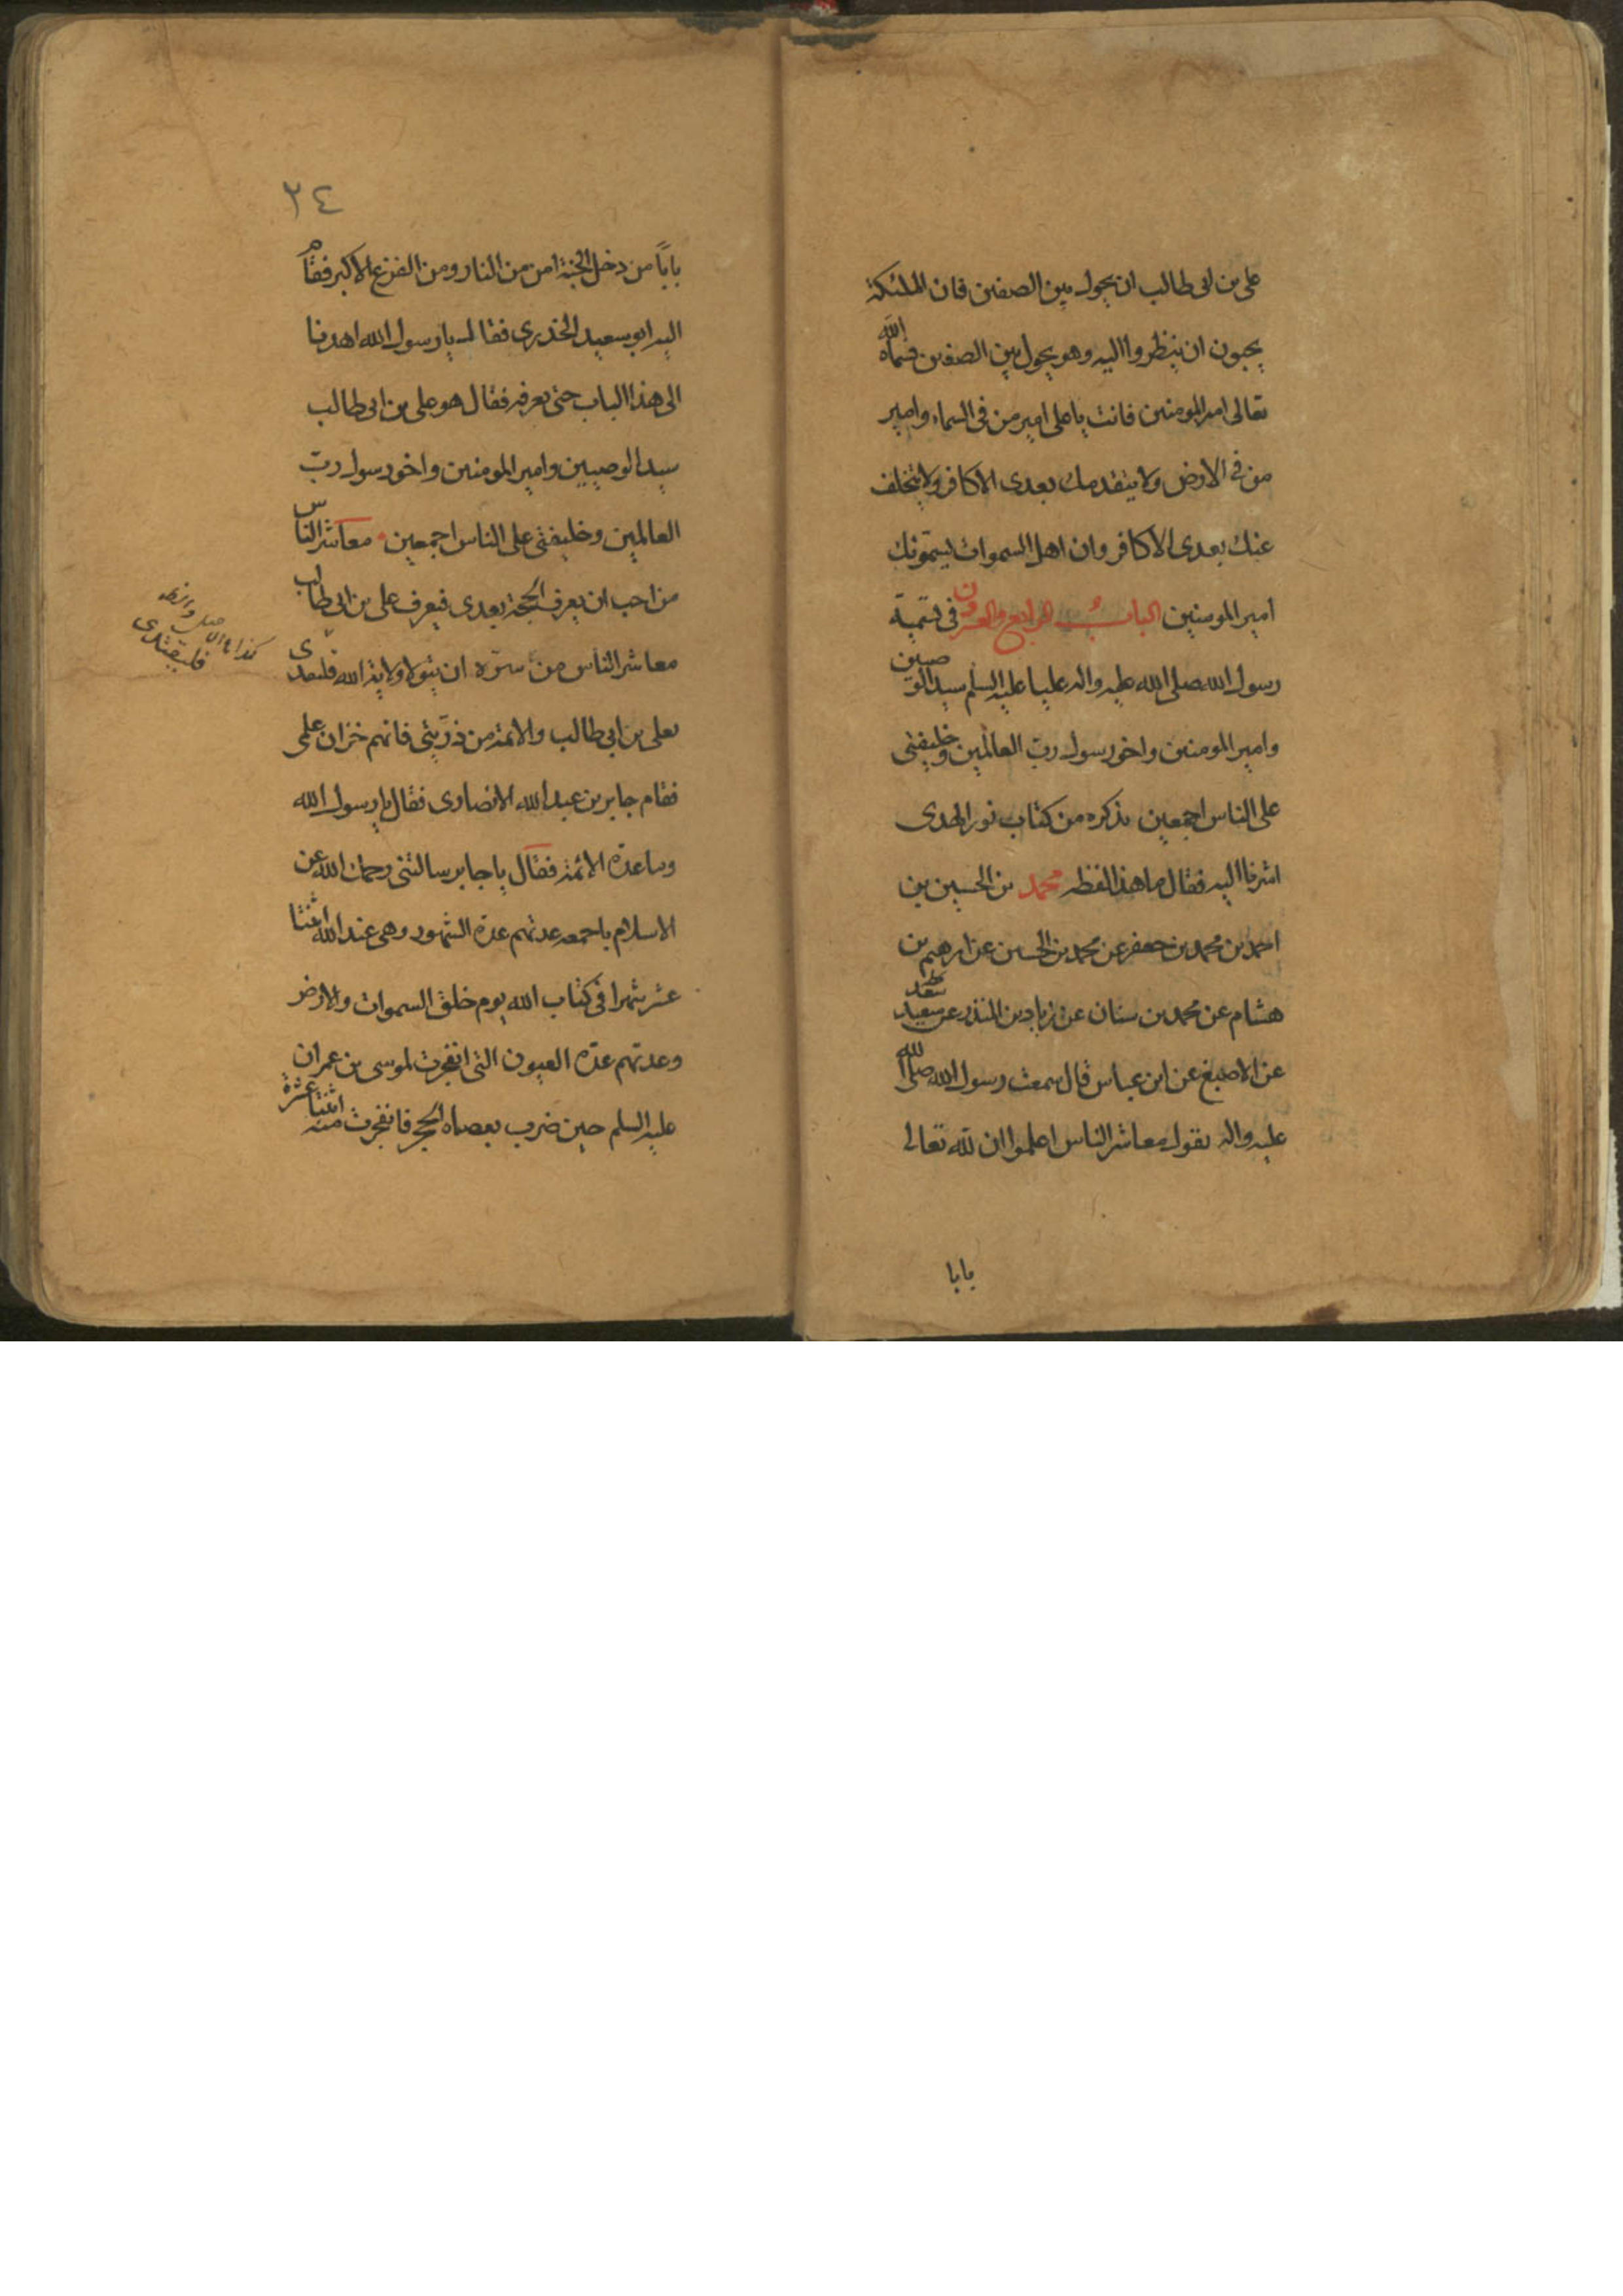 علي بن ابى طالب ان يجول بين الصفين فان الملئكة
يحبون ان ينظروا اليه وهو يجول بين الصفين فسماه الله
تعالى امير المومنين فانت يا على امير من فى السماء وامير
من فى الارض ولا يتقدمك بعدى الا كافر ولا يتخلف
عنك بعدى الا كافر وان اهل السموات يسمونك
امير المومنين الباب الرابع والعشرون فى تسمية
رسول الله صلى الله عليه واله عليا عليه السلم سيد الوصيين
وامير المومنين واخو رسول ربّ العالمين وخليفتى
على الناس اجمعين نذكره من كتاب نور الهدى
اشرنا اليه فقال ما هذا لفظه محمد بن الحسين بن
احمد بن محمد بن جعفر عن محمد بن الحسين عن ابرهيم بن
هشام عن محمد بن سنان عن زياد بن المنذر عن سعيد سعد
عن الاصبغ عن ابن عباس قال سمعت رسول الله صلى الله
عليه واله يقول معاشر الناس اعلموا ان لله تعالى
بابا
٢٤
باباً من دخل الجنة امن من النار ومن الفزع الاكبر فقام
اليه ابو سعيد الخدرى فقال يا رسول الله اهدنا
الى هذا الباب حتى نعرفه فقال هو على بن ابى طالب
سيد الوصيين وامير المومنين واخو رسول ربّ
العالمين وخليفتى على الناس اجمعين معاشر الناس
من احب ان يعرف الحجة بعدى فيعرف على بن ابى طالب
معاشر الناس من سرّه ان يتولا ولاية الله فليقتدى
بعلى بن ابى طالب والائمة من ذرّيتى فانهم خزان علمى
فقام جابر بن عبد الله الانصارى فقال يا رسول الله
وما عدّة الائمة فقال يا جابر سالتنى رحمك الله عن
الاسلام باجمعه عدتهم عدّة الشهور وهى عند الله اثنتا
عشر شهرا فى كتاب الله يوم خلق السموات والارض
وعدتهم عدّة العيون التى انفجرت لموسى بن عمران
عليه السلم حين ضرب بعصاه الحجر فانفجرت منه اثنتا عشرة
كذا بالاصل
فليقتدى